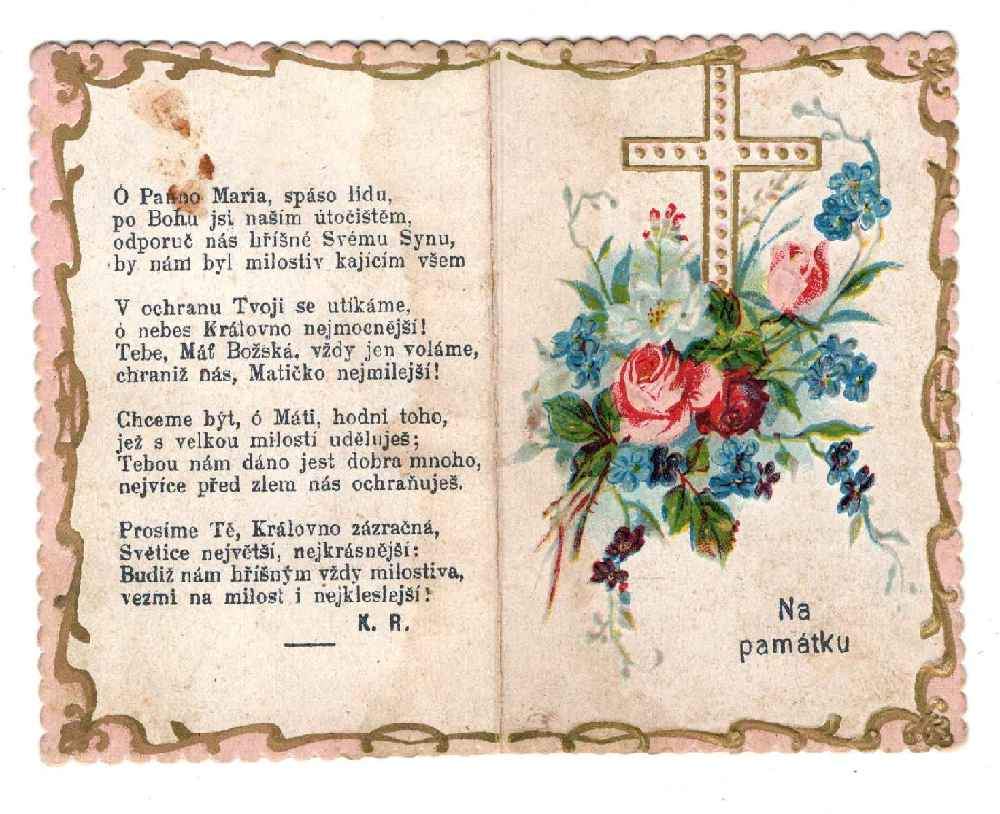 Ó Panno Maria, spáso lidu,
po Bohu jsi naším útočištěm,
odporuč nás hříšné Svému Synu,
by nám byl milostiv kajícím všem
V ochranu Tvoji se utíkáme,
ó nebes Královno nejmocnější!
Tebe, Máť Božská, vždy jen voláme,
chraniž nás, Matičko nejmilejší!
Chceme být, ó Máti, hodni toho,
jež s velkou milostí uděluješ;
Tebou nám dáno jest dobra mnoho,
nejvíce před zlem nás ochraňuješ.
Prosíme Tě, Královno zázračná,
Světice největší, nejkrásnější:
Budiž nám hříšným vždy milostiva,
vezmi na milost i nejkleslejší!
K. R.
Na
památku